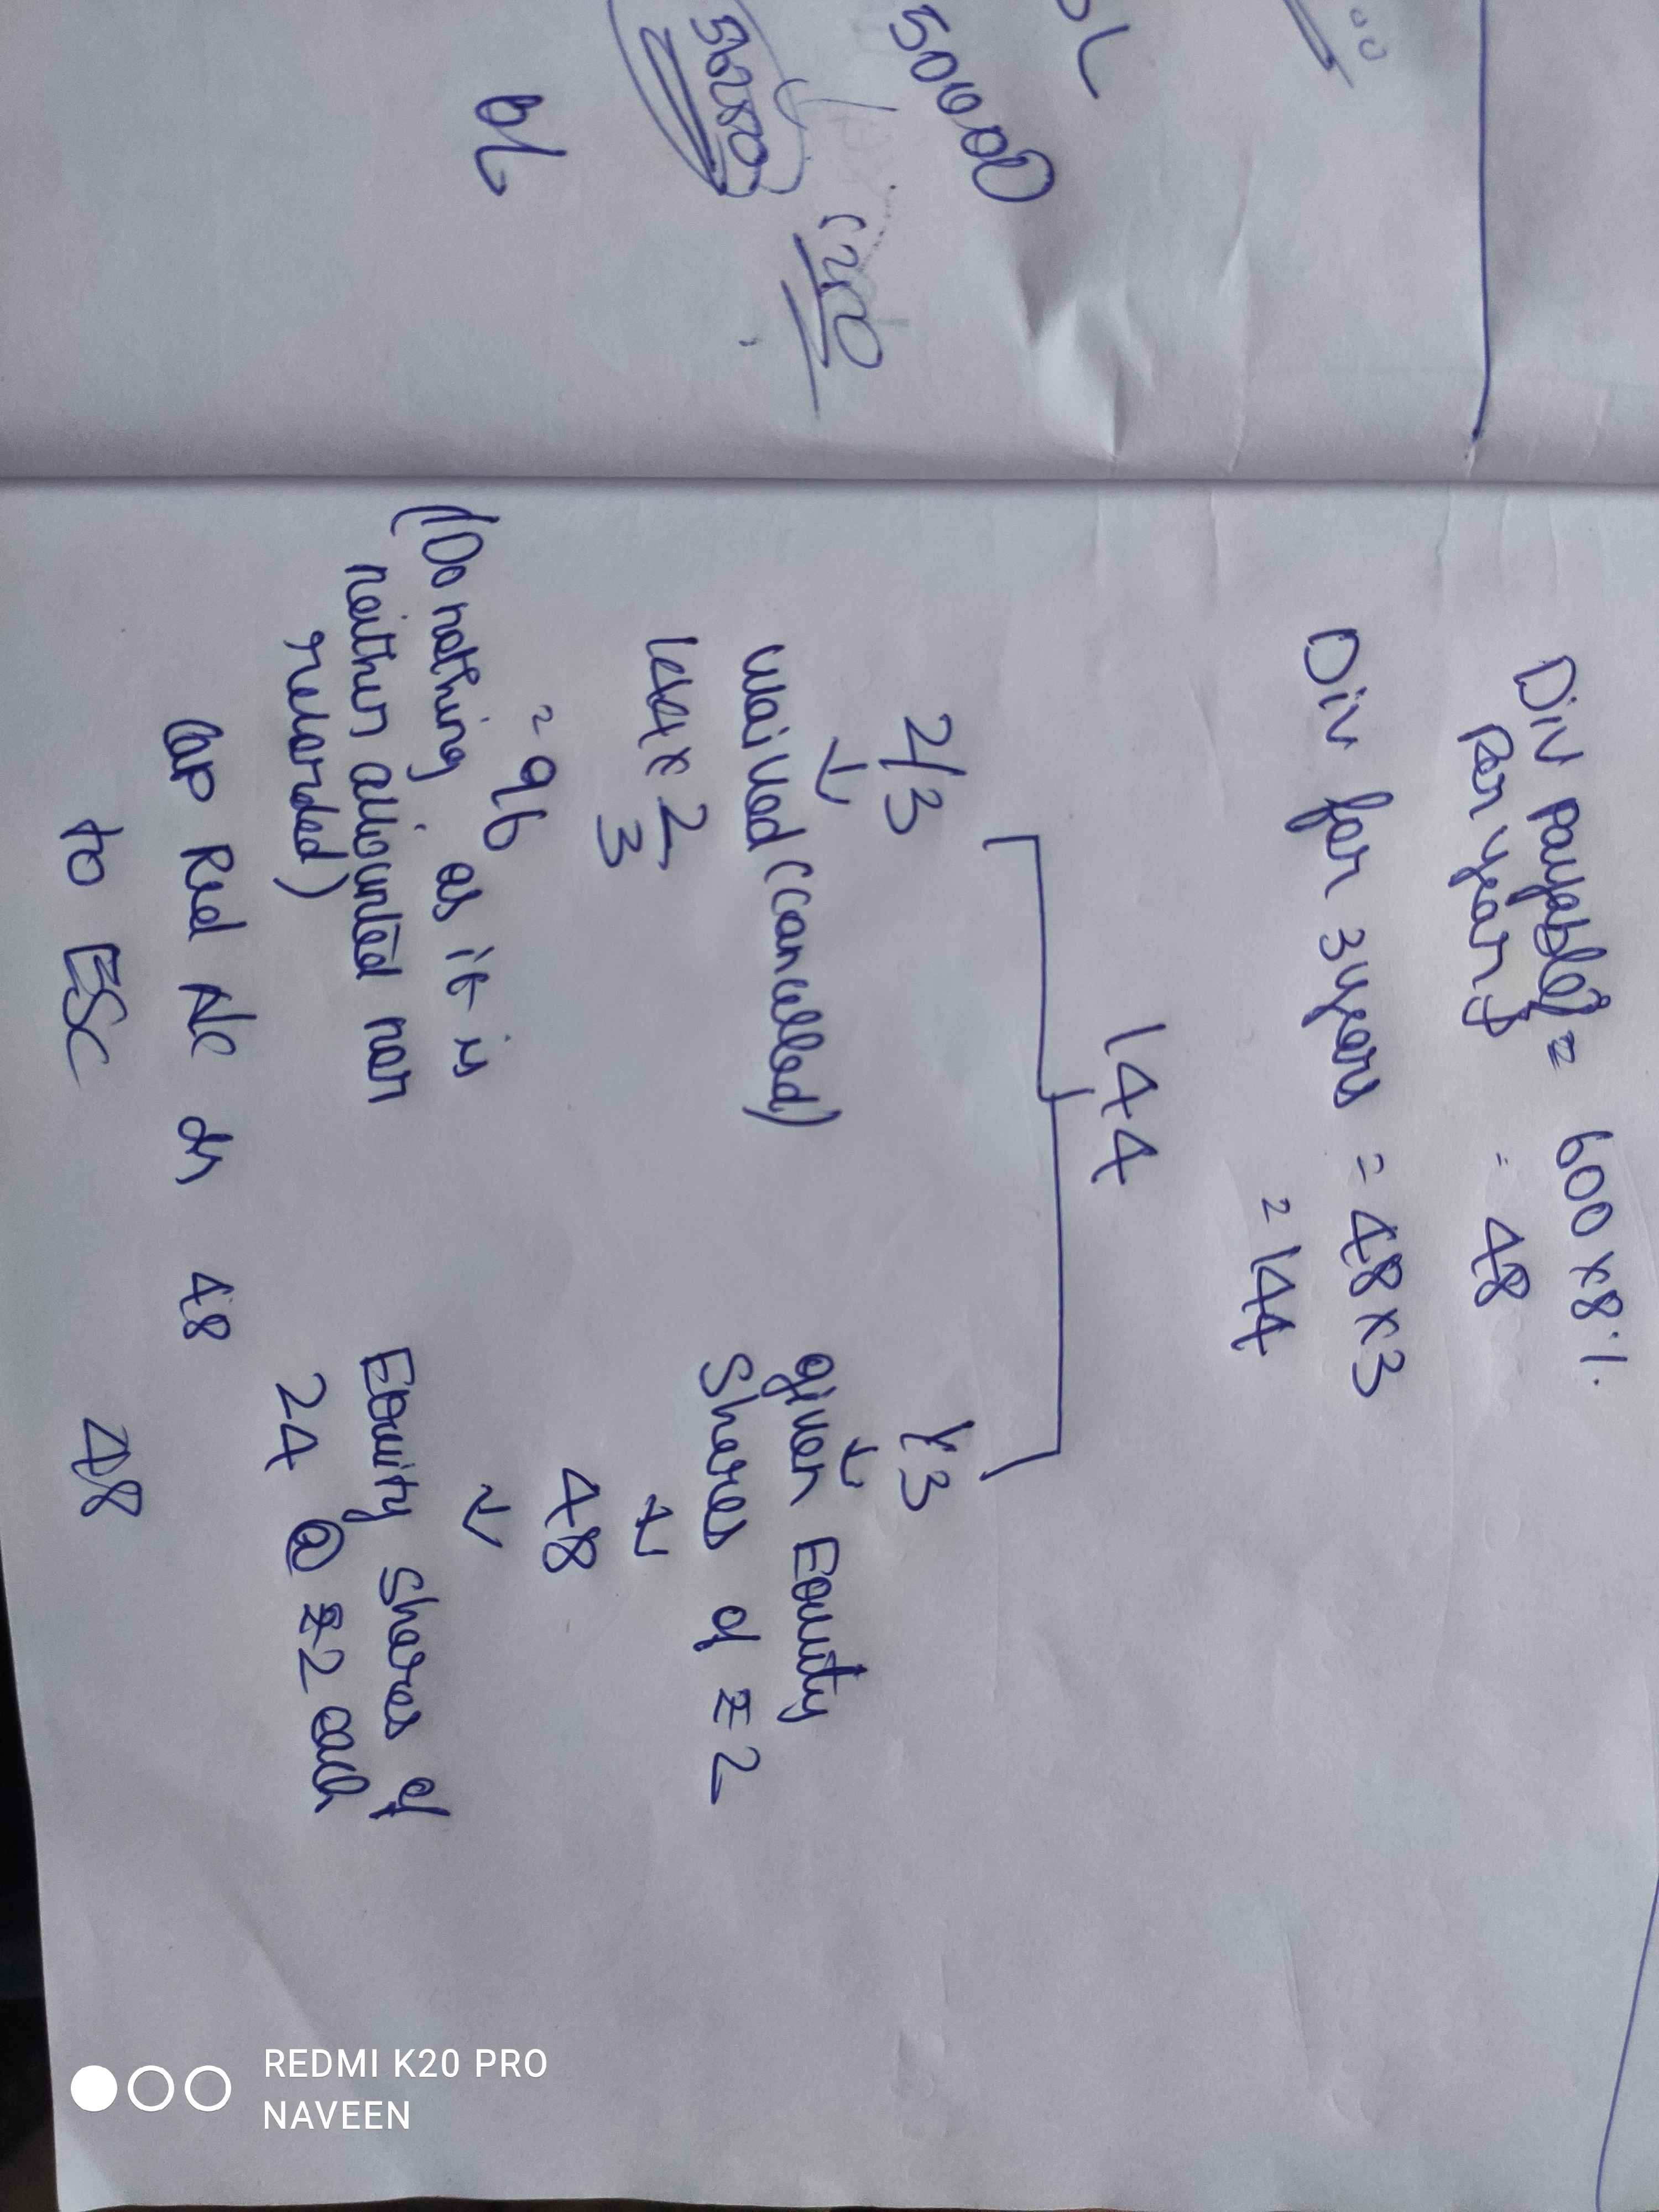 Div payable} = 600 x 8%
per year} = 48
Div for 3 years = 48 x 3
= 144
144
2/3
1/3
↓
↓
waived (cancelled)
given Equity
Shares of ₹2
144 x 2/3
↓
= 96
48
↓
(Do nothing as it is
neither accounted nor
recorded)
Equity shares of
24 @ ₹2 each
Cap Red A/c dr 48
to ESC 48
50000
56250
REDMI K20 PRO
NAVEEN